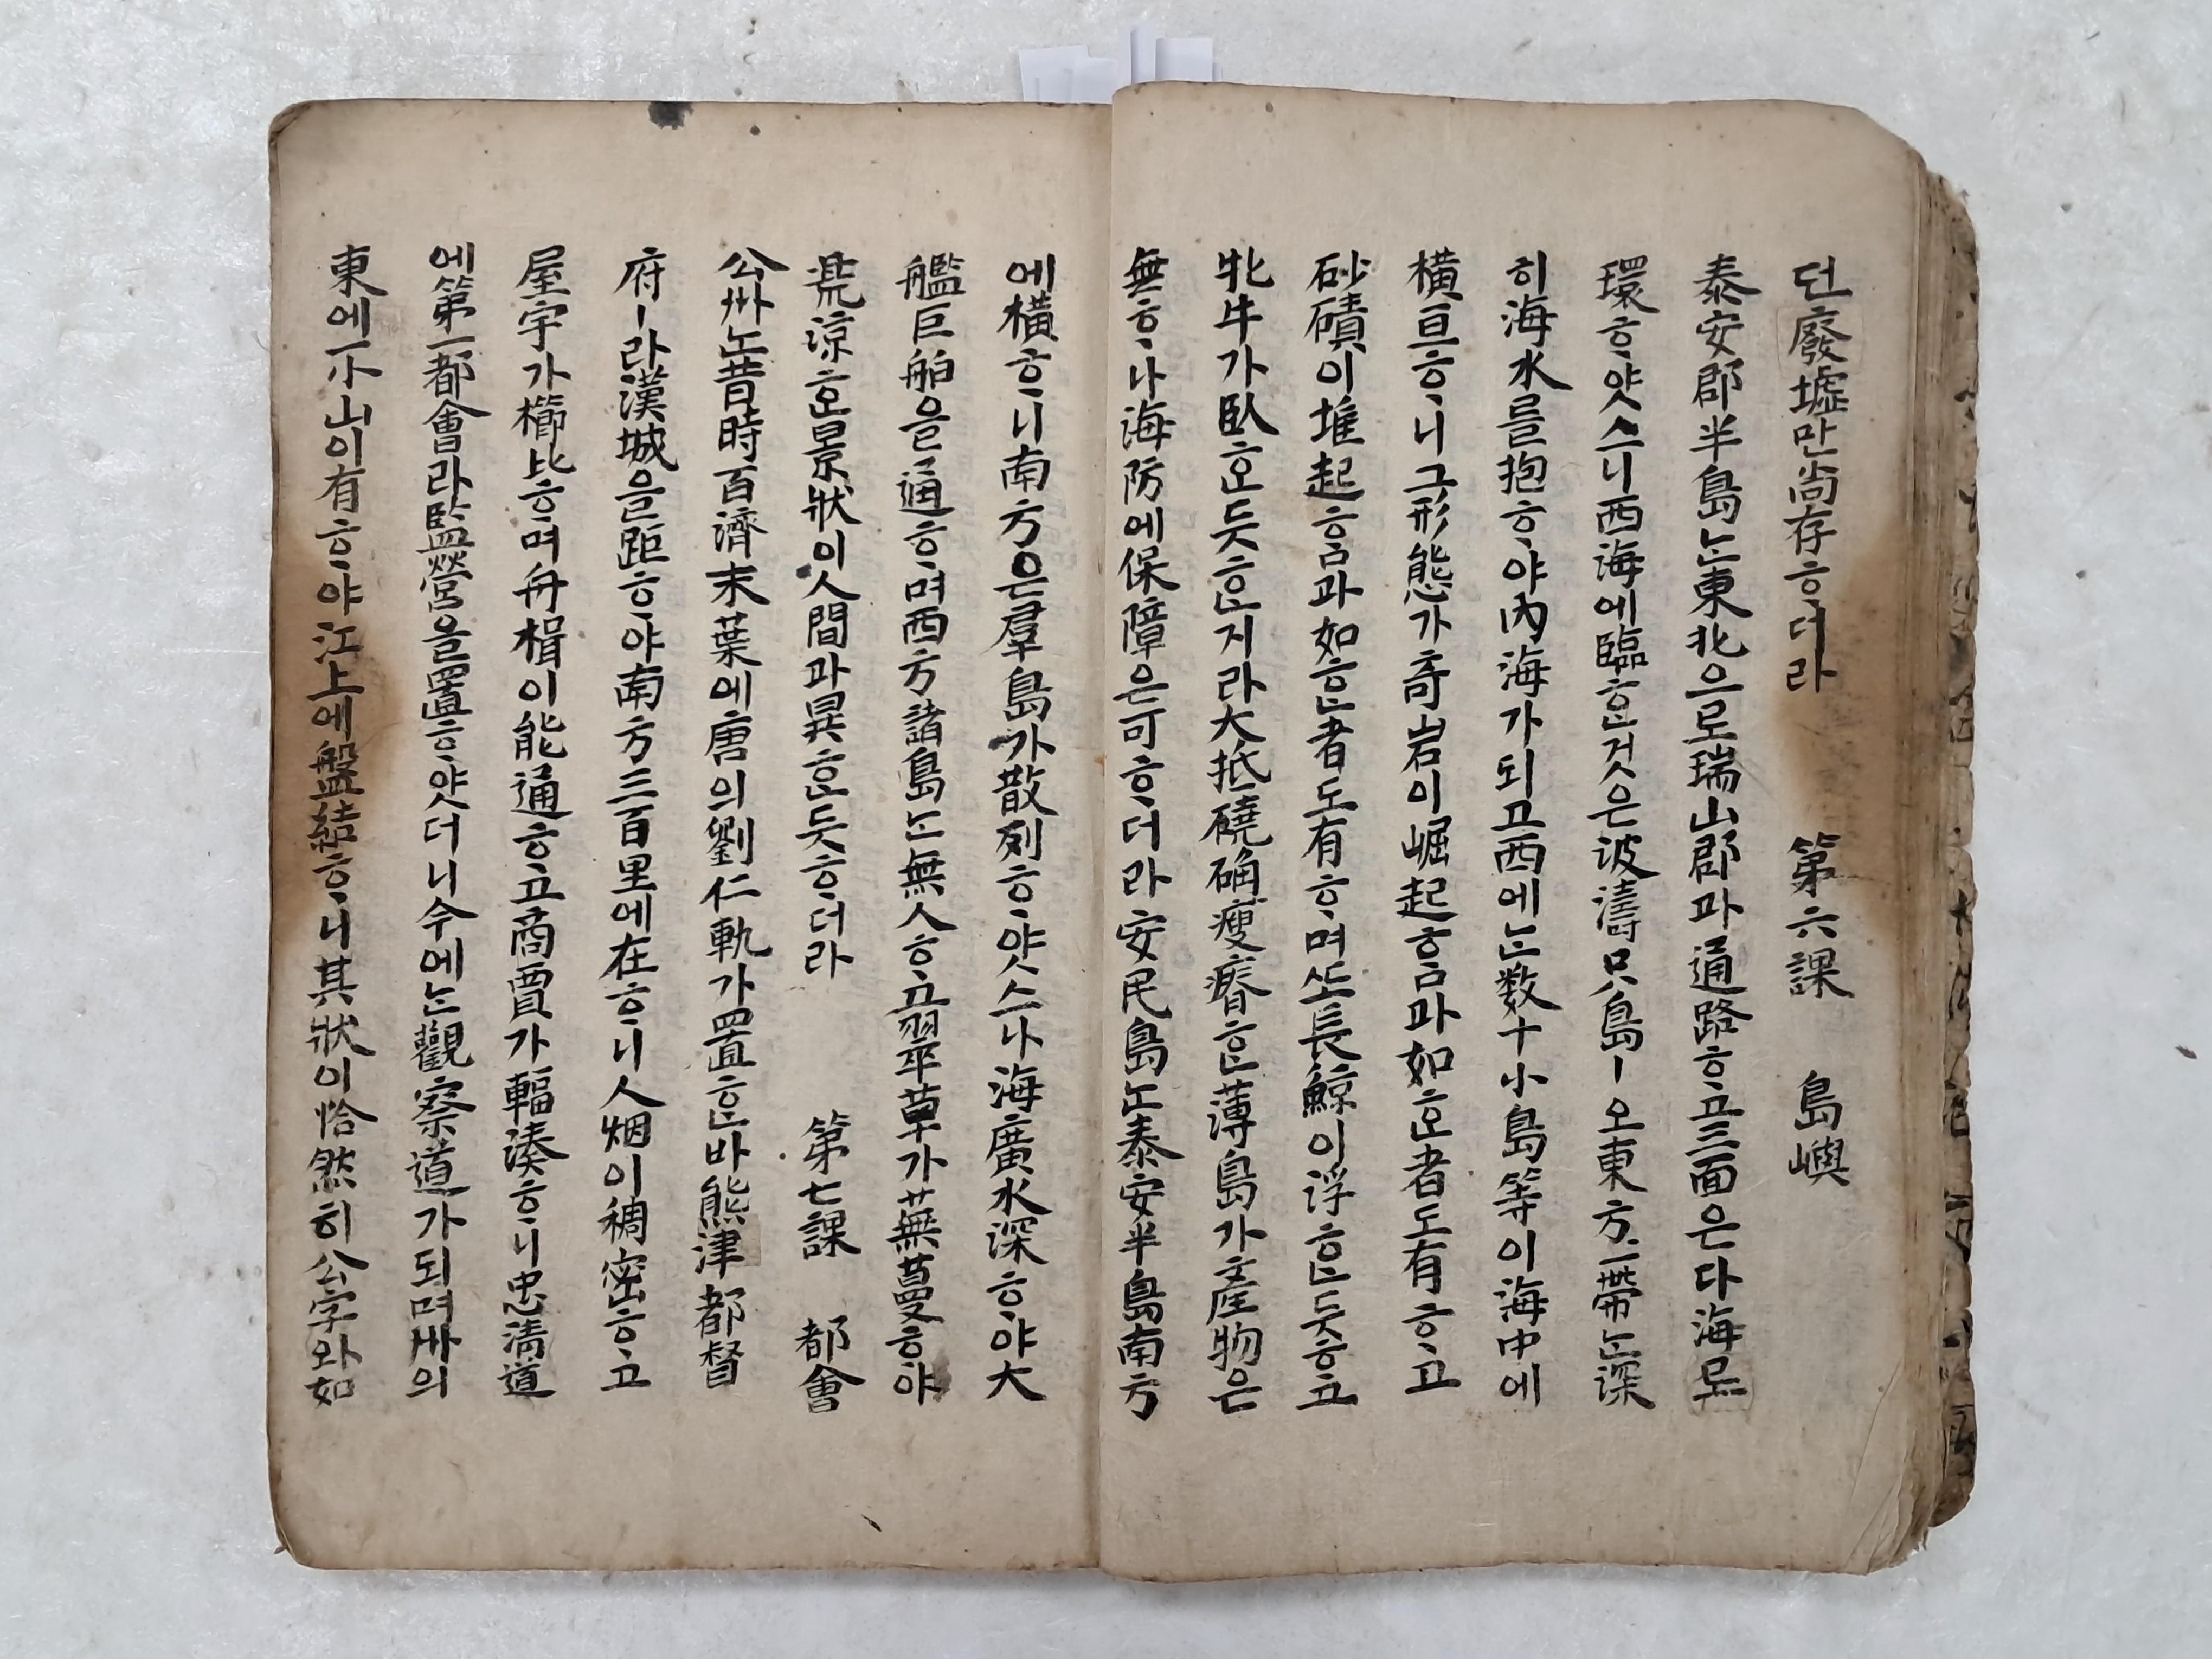 던廢墟만尙存ᄒᆞ더라 第六課 島嶼
泰安郡半島ᄂᆞᆫ東北으로瑞山郡과通路ᄒᆞ고三面은다海로
環ᄒᆞ얏스니西海에臨ᄒᆞᆫ것은波濤只島ㅣ오東方一帶ᄂᆞᆫ深
히海水를抱ᄒᆞ야內海가되고西에ᄂᆞᆫ数十小島等이海中에
橫亘ᄒᆞ니그形態가奇岩이崛起ᄒᆞᆷ과如ᄒᆞᆫ者도有ᄒᆞ고
砂磧이堆起ᄒᆞᆷ과如ᄒᆞᆫ者도有ᄒᆞ며ᄯᅩ長鯨이浮ᄒᆞᆫ듯ᄒᆞ고
牝牛가臥ᄒᆞᆫ듯ᄒᆞᆫ지라大抵磽确瘦瘠ᄒᆞᆫ薄島가産物은
無ᄒᆞ나海防에保障은可ᄒᆞ더라安民島ᄂᆞᆫ泰安半島南方
에橫ᄒᆞ니南方은羣島가散列ᄒᆞ얏스나海廣水深ᄒᆞ야大
艦巨舶을通ᄒᆞ며西方諸島ᄂᆞᆫ無人ᄒᆞ고翠草가蕪蔓ᄒᆞ야
荒凉ᄒᆞᆫ景狀이人間과異ᄒᆞᆫ듯ᄒᆞ더라 第七課 都會
公州ᄂᆞᆫ昔時百濟末葉에唐의劉仁軌가置ᄒᆞᆫ바熊津都督
府ㅣ라漢城을距ᄒᆞ야南方三百里에在ᄒᆞ니人烟이稠密ᄒᆞ고
屋宇가櫛比ᄒᆞ며舟楫이能通ᄒᆞ고商賈가輻湊ᄒᆞ니忠淸道
에第一都會라監營을置ᄒᆞ얏더니今에ᄂᆞᆫ觀察道가되며州의
東에一小山이有ᄒᆞ야江上에盤結ᄒᆞ니其狀이恰然히公字와如